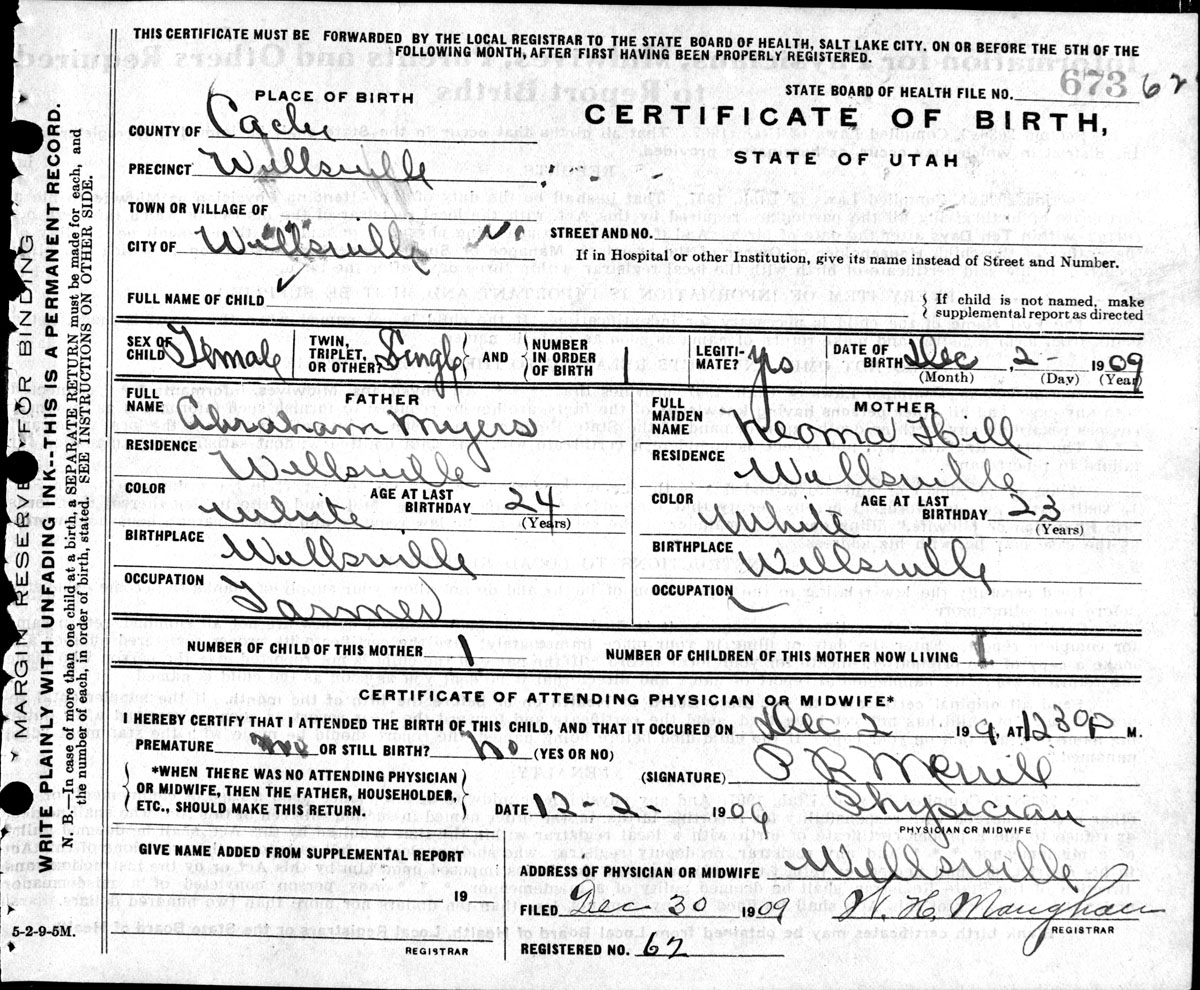 THIS CERTIFICATE MUST BE FORWARDED BY THE LOCAL REGISTRAR TO THE STATE BOARD OF HEALTH, SALT LAKE CITY, ON OR BEFORE THE 5TH OF THE
FOLLOWING MONTH, AFTER FIRST HAVING BEEN PROPERLY REGISTERED.
STATE BOARD OF HEALTH FILE NO. 673 62
PLACE OF BIRTH
CERTIFICATE OF BIRTH,
STATE OF UTAH
COUNTY OF Cache
PRECINCT Wellsville
TOWN OR VILLAGE OF
CITY OF Wellsville
STREET AND NO.
If in Hospital or other Institution, give its name instead of Street and Number.
FULL NAME OF CHILD
{ If child is not named, make
supplemental report as directed
SEX OF CHILD Female TWIN, TRIPLET, OR OTHER? Single AND { NUMBER IN ORDER OF BIRTH 1 LEGITI-MATE? Ys DATE OF BIRTH Dec 2- 1909
(Month) (Day) (Year)
FATHER
FULL NAME Abraham Myers
RESIDENCE Wellsville
COLOR White AGE AT LAST BIRTHDAY 24 (Years)
BIRTHPLACE Wellsville
OCCUPATION Farmer
MOTHER
FULL MAIDEN NAME Neoma Hill
RESIDENCE Wellsville
COLOR White AGE AT LAST BIRTHDAY 23 (Years)
BIRTHPLACE Wellsville
OCCUPATION
NUMBER OF CHILD OF THIS MOTHER 1 NUMBER OF CHILDREN OF THIS MOTHER NOW LIVING 1
CERTIFICATE OF ATTENDING PHYSICIAN OR MIDWIFE*
I HEREBY CERTIFY THAT I ATTENDED THE BIRTH OF THIS CHILD, AND THAT IT OCCURED ON Dec 2 19 9, AT 1230 P M.
PREMATURE no OR STILL BIRTH? No (YES OR NO)
{ *WHEN THERE WAS NO ATTENDING PHYSICIAN }
OR MIDWIFE, THEN THE FATHER, HOUSEHOLDER,
ETC., SHOULD MAKE THIS RETURN.
(SIGNATURE) P R Merrill
DATE 12-2- 1909 Physician
PHYSICIAN OR MIDWIFE
GIVE NAME ADDED FROM SUPPLEMENTAL REPORT
19
REGISTRAR
ADDRESS OF PHYSICIAN OR MIDWIFE Wellsville
FILED Dec 30 1909 W. H. Maughan
REGISTRAR
REGISTERED NO. 62
5-2-9-5M.
MARGIN RESERVED FOR BINDING
WRITE PLAINLY WITH UNFADING INK--THIS IS A PERMANENT RECORD.
N. B.—In case of more than one child at a birth, a SEPARATE RETURN must be made for each, and
the number of each, in order of birth, stated. SEE INSTRUCTIONS ON OTHER SIDE.